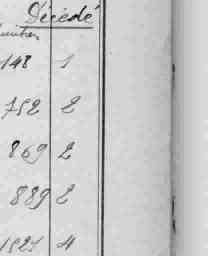 Décédé
148 1
752 2
869 2
889 2
1521 4